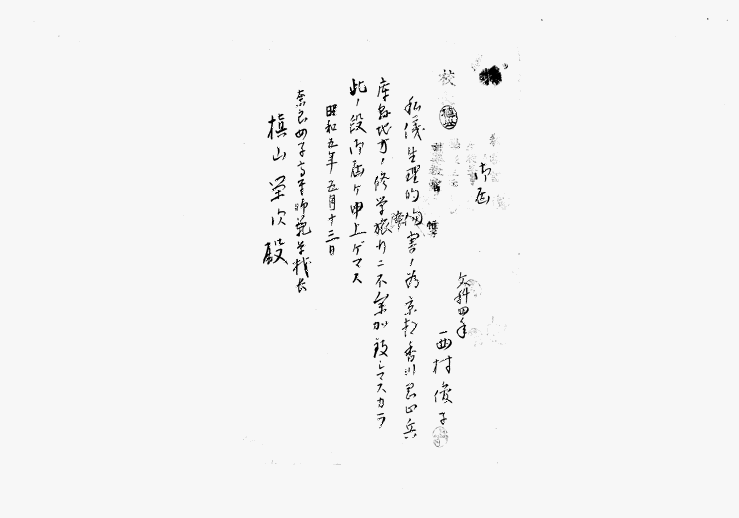 御届
文科四年
西村俊子
私儀生理的障害ノ為京都香川岡山兵
庫各地方ノ修学旅行ニ不参加致シマスカラ
此ノ段御届ケ申上ゲマス
昭和五年五月十三日
奈良女子高等師範学校長
槇山栄次殿
校